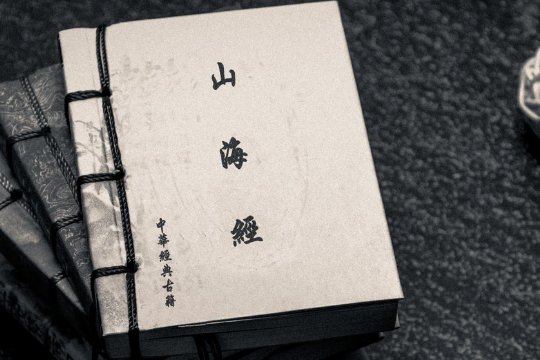 山海經
中華經典古籍